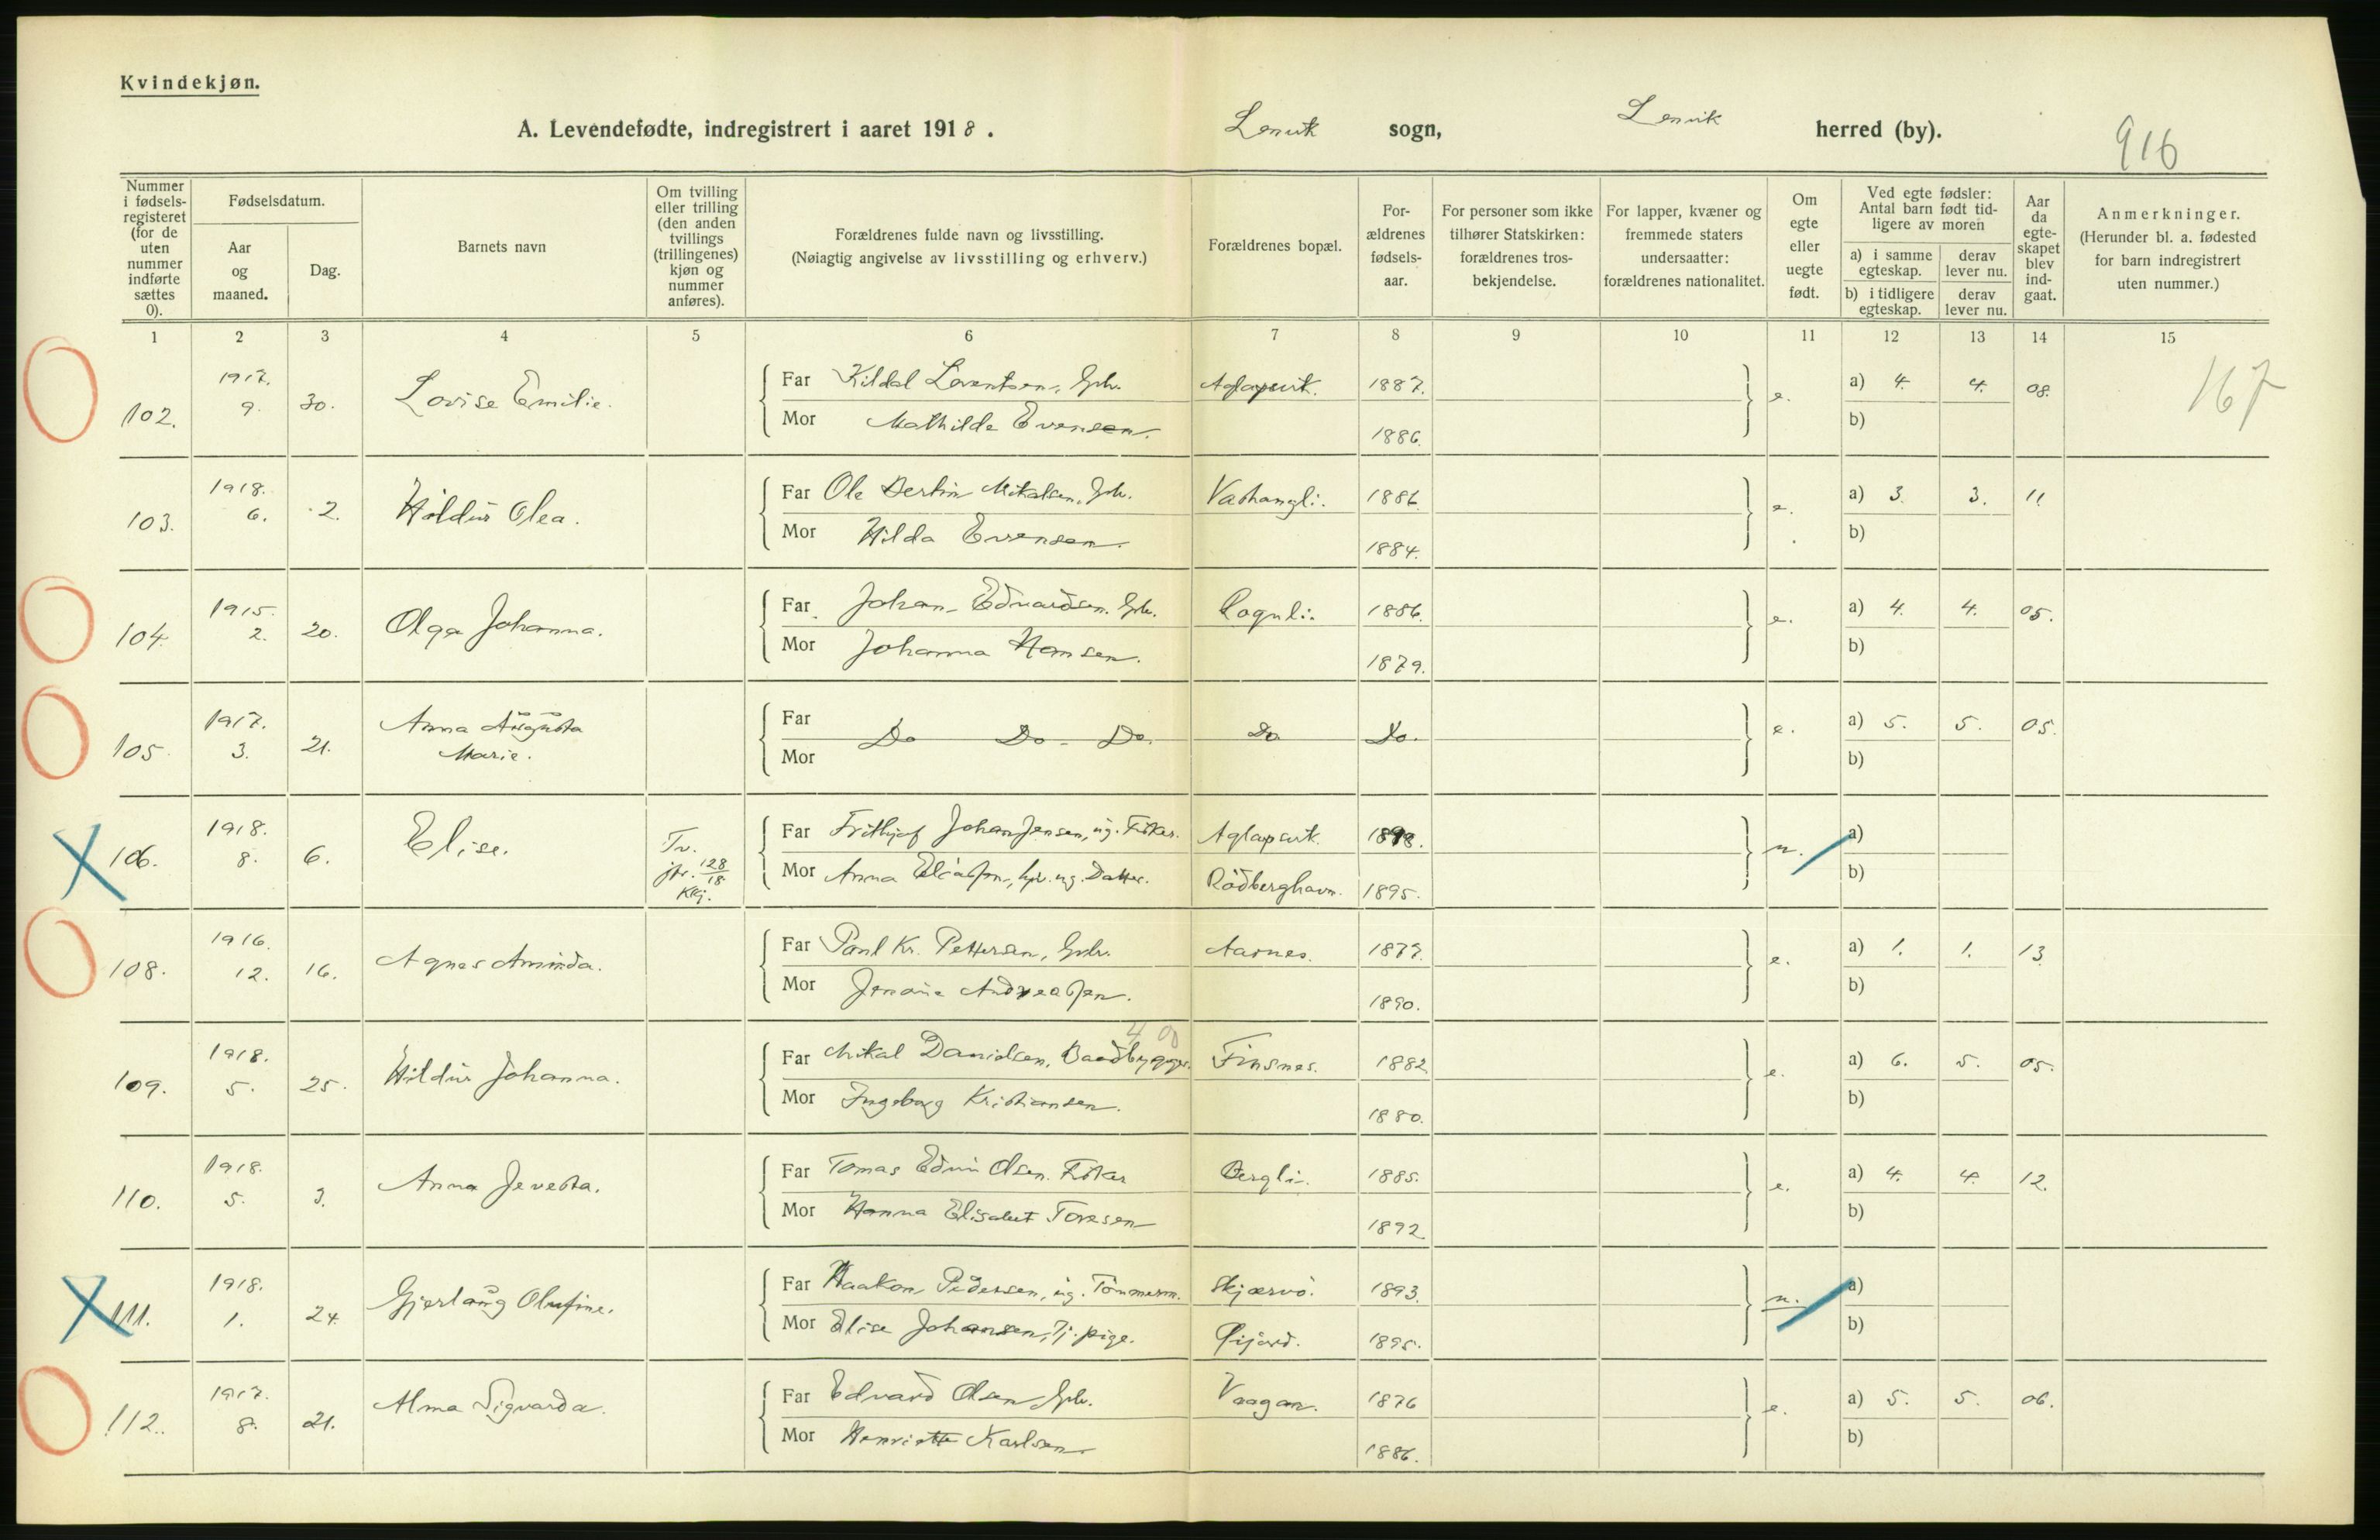 Kvindekjøn.
A. Levendefødte, indregistrert i aaret 1918. Lenvik sogn, Lenvik herred (by). 916
Nummer i fødselsregisteret (for de uten nummer indførte sættes 0).
Fødselsdatum.
Aar og maaned.
Dag.
Barnets navn
Om tvilling eller trilling (den anden tvillings (trillingenes) kjøn og nummer anføres).
Forældrenes fulde navn og livsstilling.
(Nøiagtig angivelse av livsstilling og erhverv.)
Forældrenes bopæl.
Forældrenes fødselsaar.
For personer som ikke tilhører Statskirken: forældrenes trosbekjendelse.
For lapper, kvæner og fremmede staters undersaatter: forældrenes nationalitet.
Om egte eller uegte født.
Ved egte fødsler: Antal barn født tidligere av moren
a) i samme egteskap. derav lever nu.
b) i tidligere egteskap. derav lever nu.
Aar da egteskapet blev indgaat.
Anmerkninger.
(Herunder bl. a. fødested for barn indregistrert uten nummer.)
1 2 3 4 5 6 7 8 9 10 11 12 13 14 15
102. 1917. 9. 30. Lovise Emilie. Far Kildal Lorentsen, Gbr. 1887. e. a) 4. 4. 08. 167
Mor Mathilde Evensen. 1886. b)
103. 1918. 6. 2. Hildur Olea. Far Ole Bertin Mikalsen, Gbr. 1886. e. a) 3. 3. 11.
Mor Hilda Evensen. 1884. b)
104. 1915. 2. 20. Olga Johanna. Far Johan Edvardsen. Gbr. Rognli. 1886. e. a) 4. 4. 05.
Mor Johanna Hansen. 1879. b)
105. 1917. 3. 21. Anna Augusta Marie. Far Mor Do Do - Do. Do. Do. e. a) 5. 5. 05.
b)
106. 1918. 8. 6. Elise. Tv. jfr. 128/18 Kkj. Far Frithjof Johan Jensen, ug. Fisker. Aglapsvik. 1898. u. a)
Mor Anna Eliassen, ug. Datter. Rødberghavn. 1895. b)
108. 1916. 12. 16. Agnes Aminda. Far Paul Kr. Pettersen, Gbr. Aarnes. 1877. e. a) 1. 1. 13.
Mor Andreassen. 1890. b)
109. 1918. 5. 25. Hildur Johanna. Far Mikal Danielsen, Baadbygger. Finsnes. 1882. e. a) 6. 5. 05.
Mor Ingeborg Kristiansen. 1880. b)
110. 1918. 5. 3. Anna Jevesta. Far Tomas Edvin Olsen. Fisker Bergli. 1885. e. a) 4. 4. 12.
Mor Hanna Elisabet Toresen 1892. b)
111. 1918. 1. 24. Gjerlaug Olufine. Far Haakon Pedersen, ug. Tømmerm. Skjærvø. 1893. u. a)
Mor Elise Johansen, Tj. pige. 1895. b)
112. 1917. 8. 21. Alma Sigvarda. Far Edvard Olsen, Gbr. Vaagan. 1876 e. a) 5. 5. 06.
Mor Henriette Karlsen 1886. b)